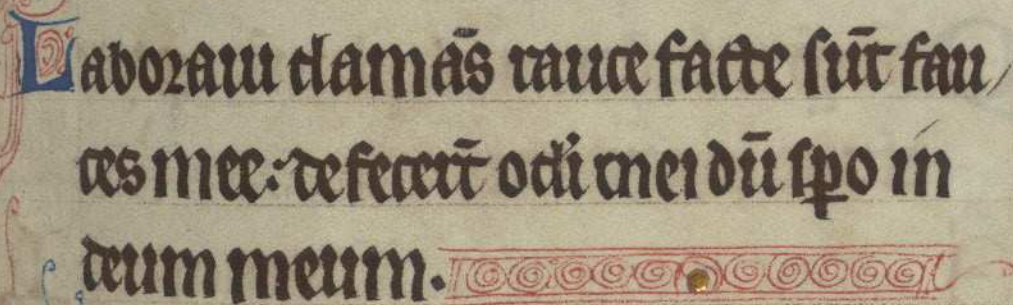 Laboraui clamãs rauce facte sũt fau/
ces mee: defecerũt oculi mei dũ spo in
deum meum.